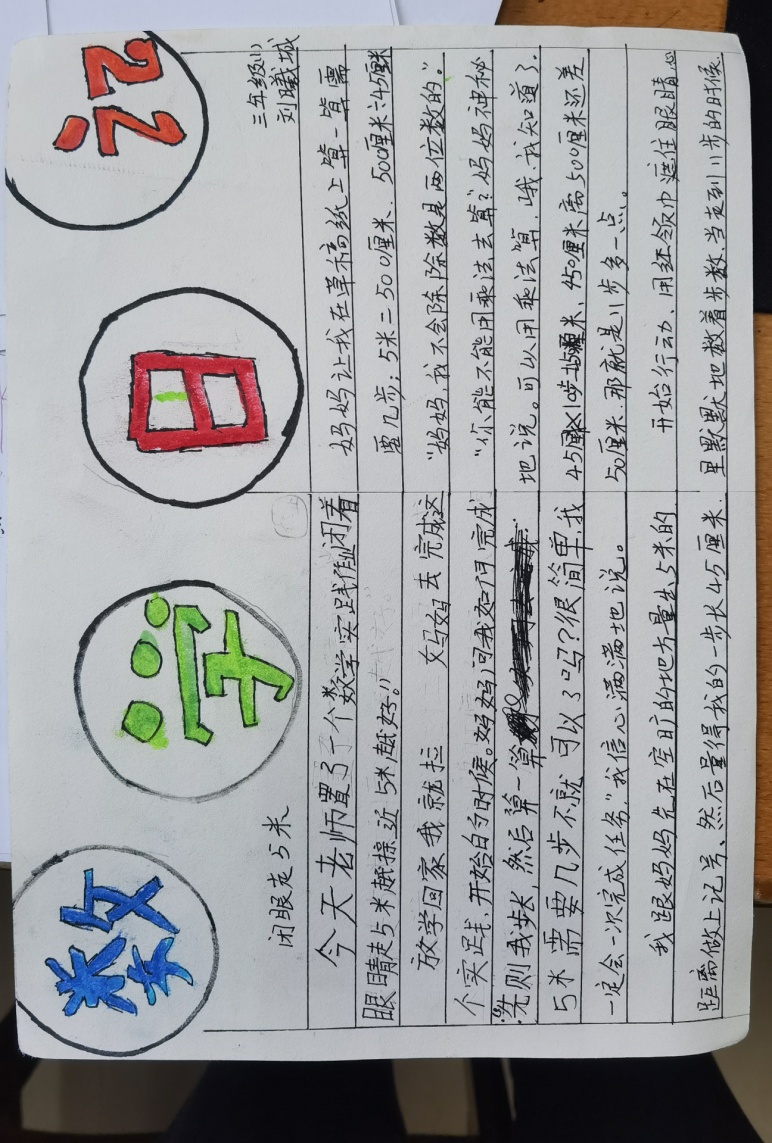 数学日记
闭眼走5米
今天老师置了一个数学实践作业闭着
眼睛走5米越接近5米越好。”
放学回家我就拦 妈妈去完成这
个实践,开始的时候。妈妈问我如何完成
先则我步长,然后算一算
5米需要几步不就可以了吗?很简单我
一定会一次完成任务,”我信心满满地说。
我跟妈妈先在空旷的地方量出5米的
距离做上记号、然后量得我的一步长45厘米.
三年级(1)
刘曦城
妈妈让我在草稿纸上算一算需
要几步;5米=500厘米、500厘米÷45厘米
“妈妈,我不会除除数是两位数的。”
“你能不能用乘法去算?妈妈神秘
地说。可以用乘法算,哦,我知道了.
45厘米×10步=450厘米、450厘米离500厘米还差
50厘米、那就是11步多一点。
开始行动、用红领巾遮住眼睛心
里默默地数着步数,当走到11步的时候